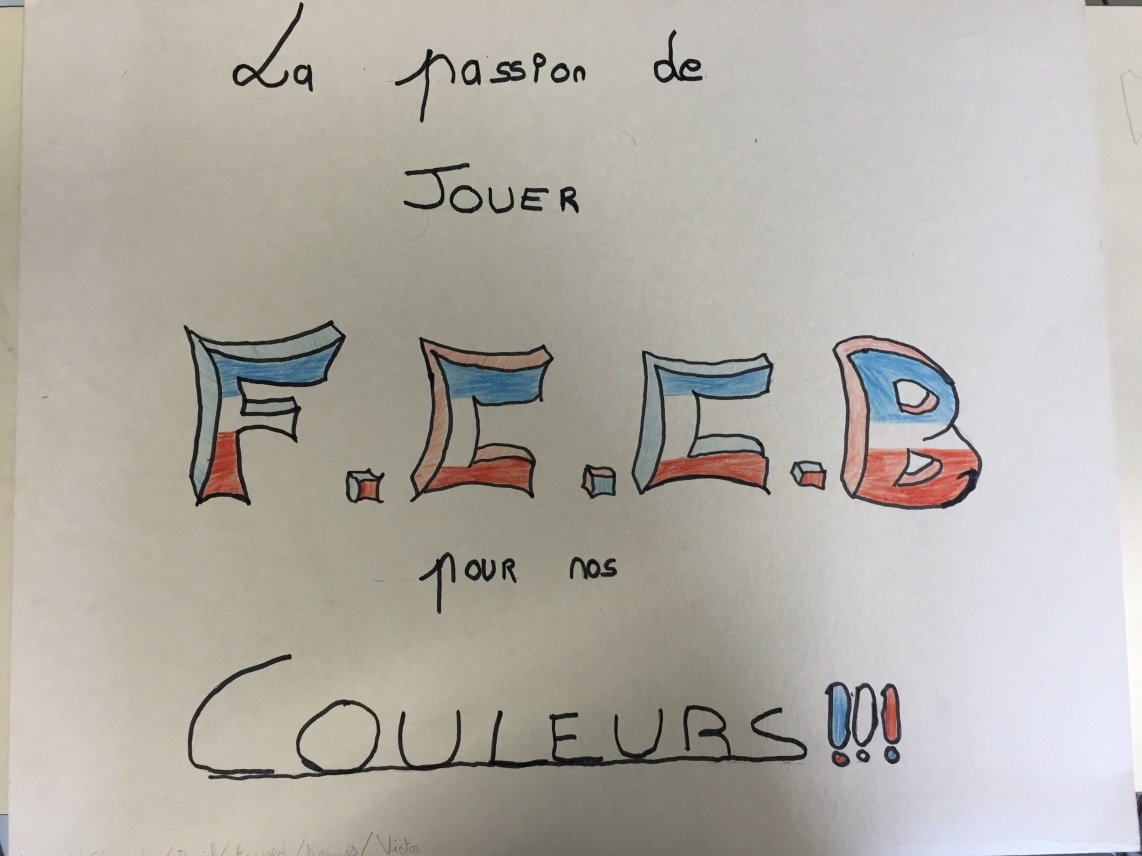 La passion de
JOUER
F.C.C.B
pour nos
COULEURS!!!
Victor